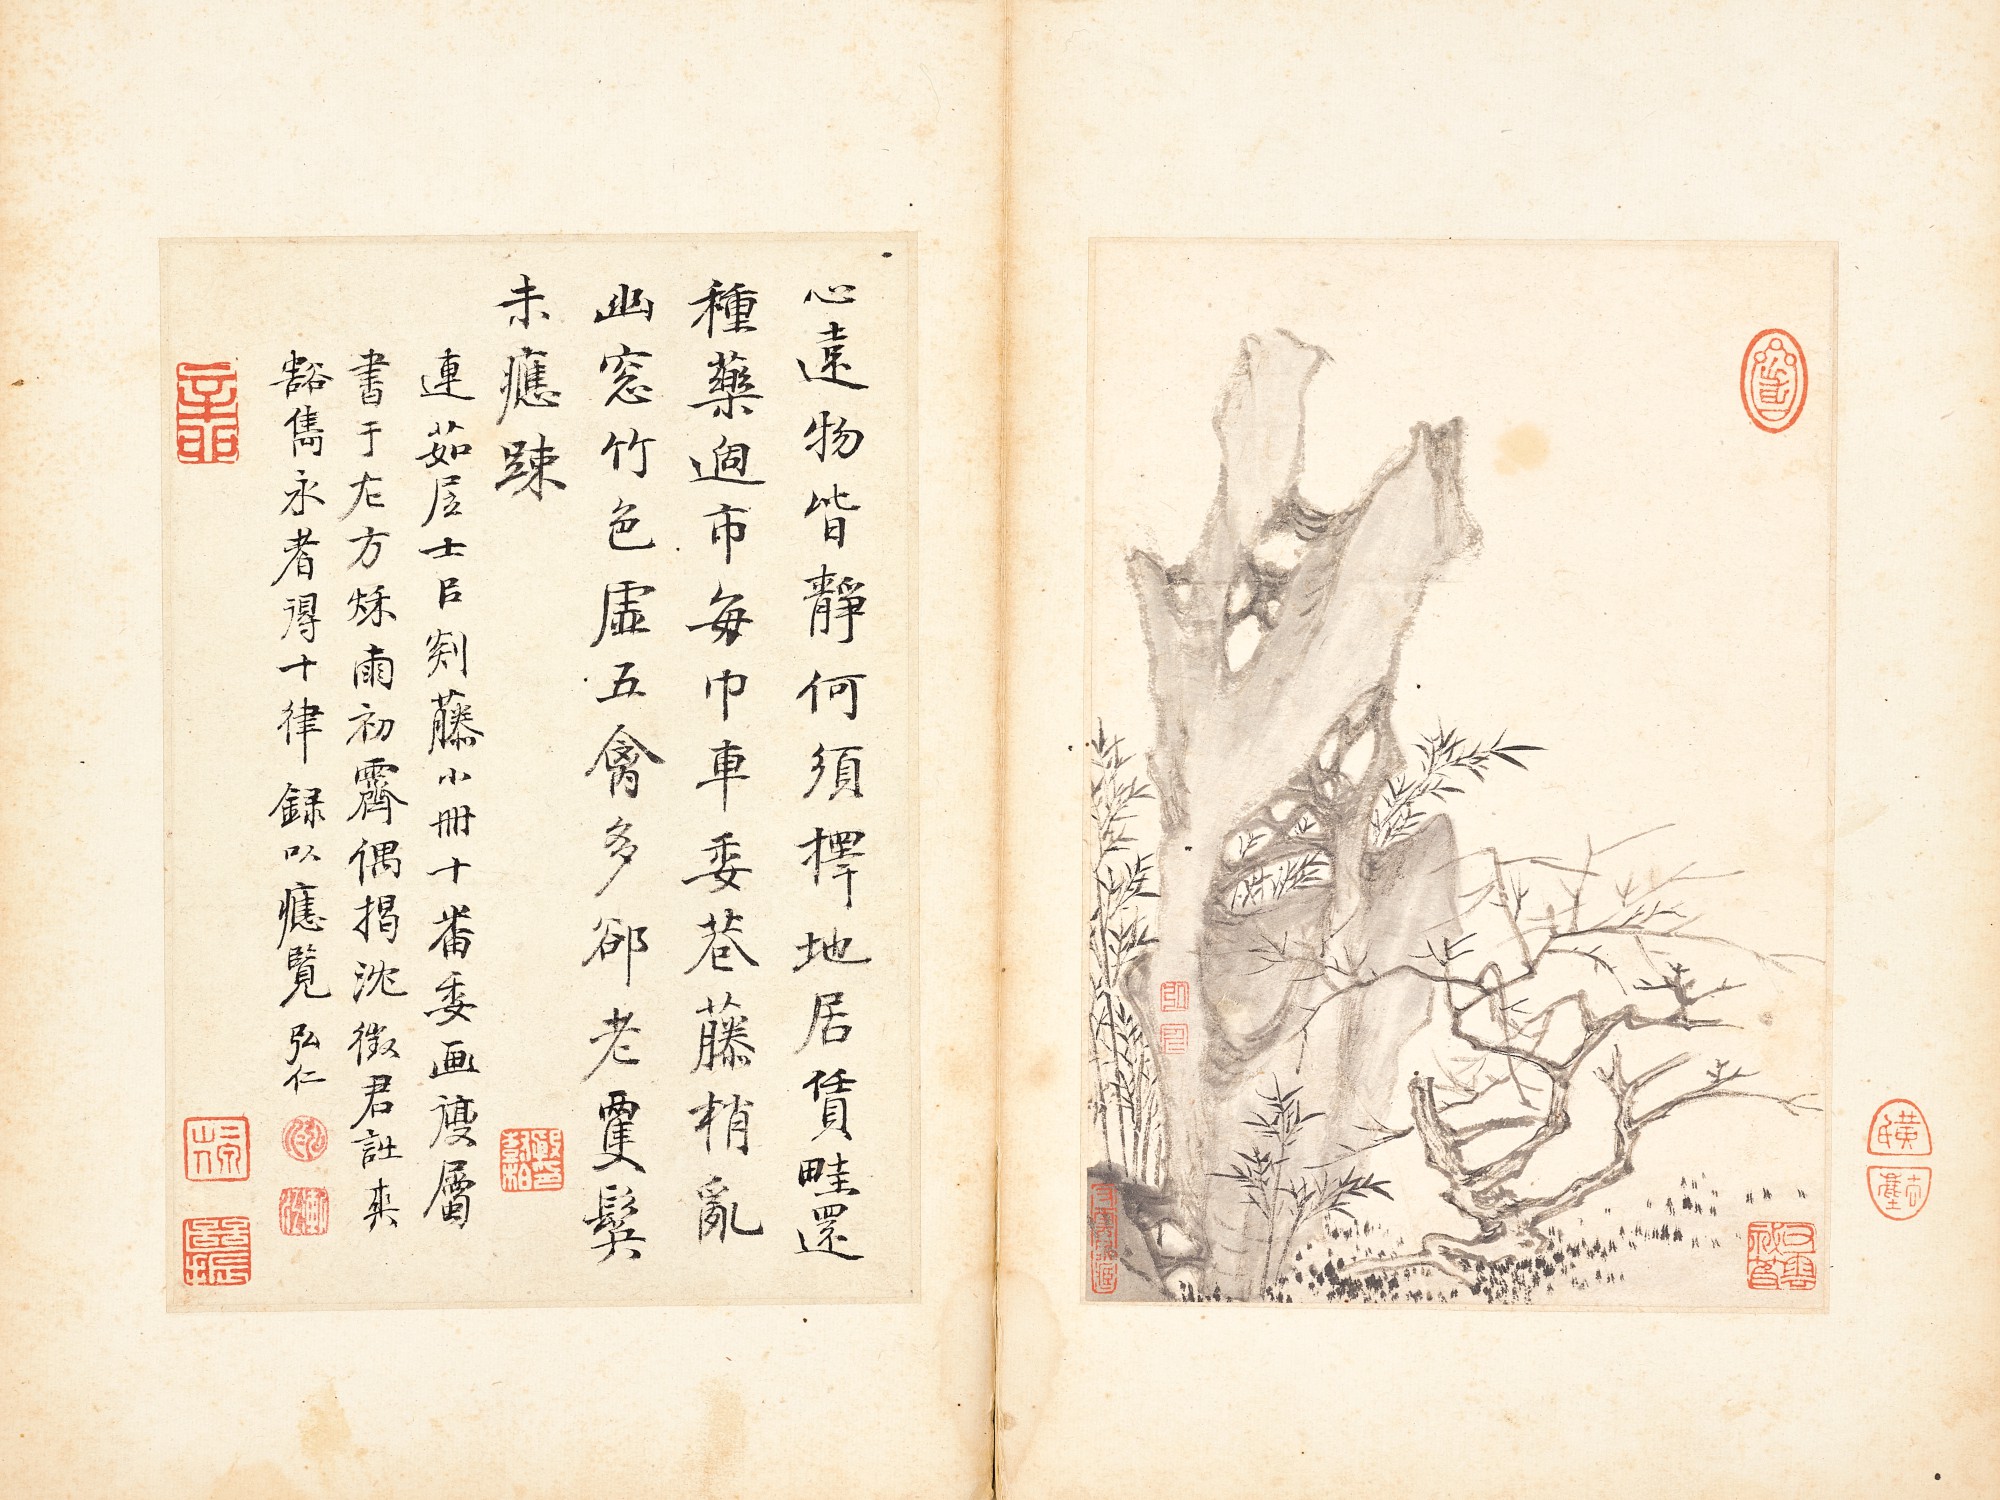 心遠物皆靜何須擇地居賃畦還
種藥過市每巾車委巷藤梢亂
幽窓竹色虛五禽多郤老霋鬢
未應踈
連茹居士㠯剡藤小冊十番委画復屬
書于左方秌雨初霽偶揭沈徵君詿奕
豁雋永者得十律録以應覧 弘仁